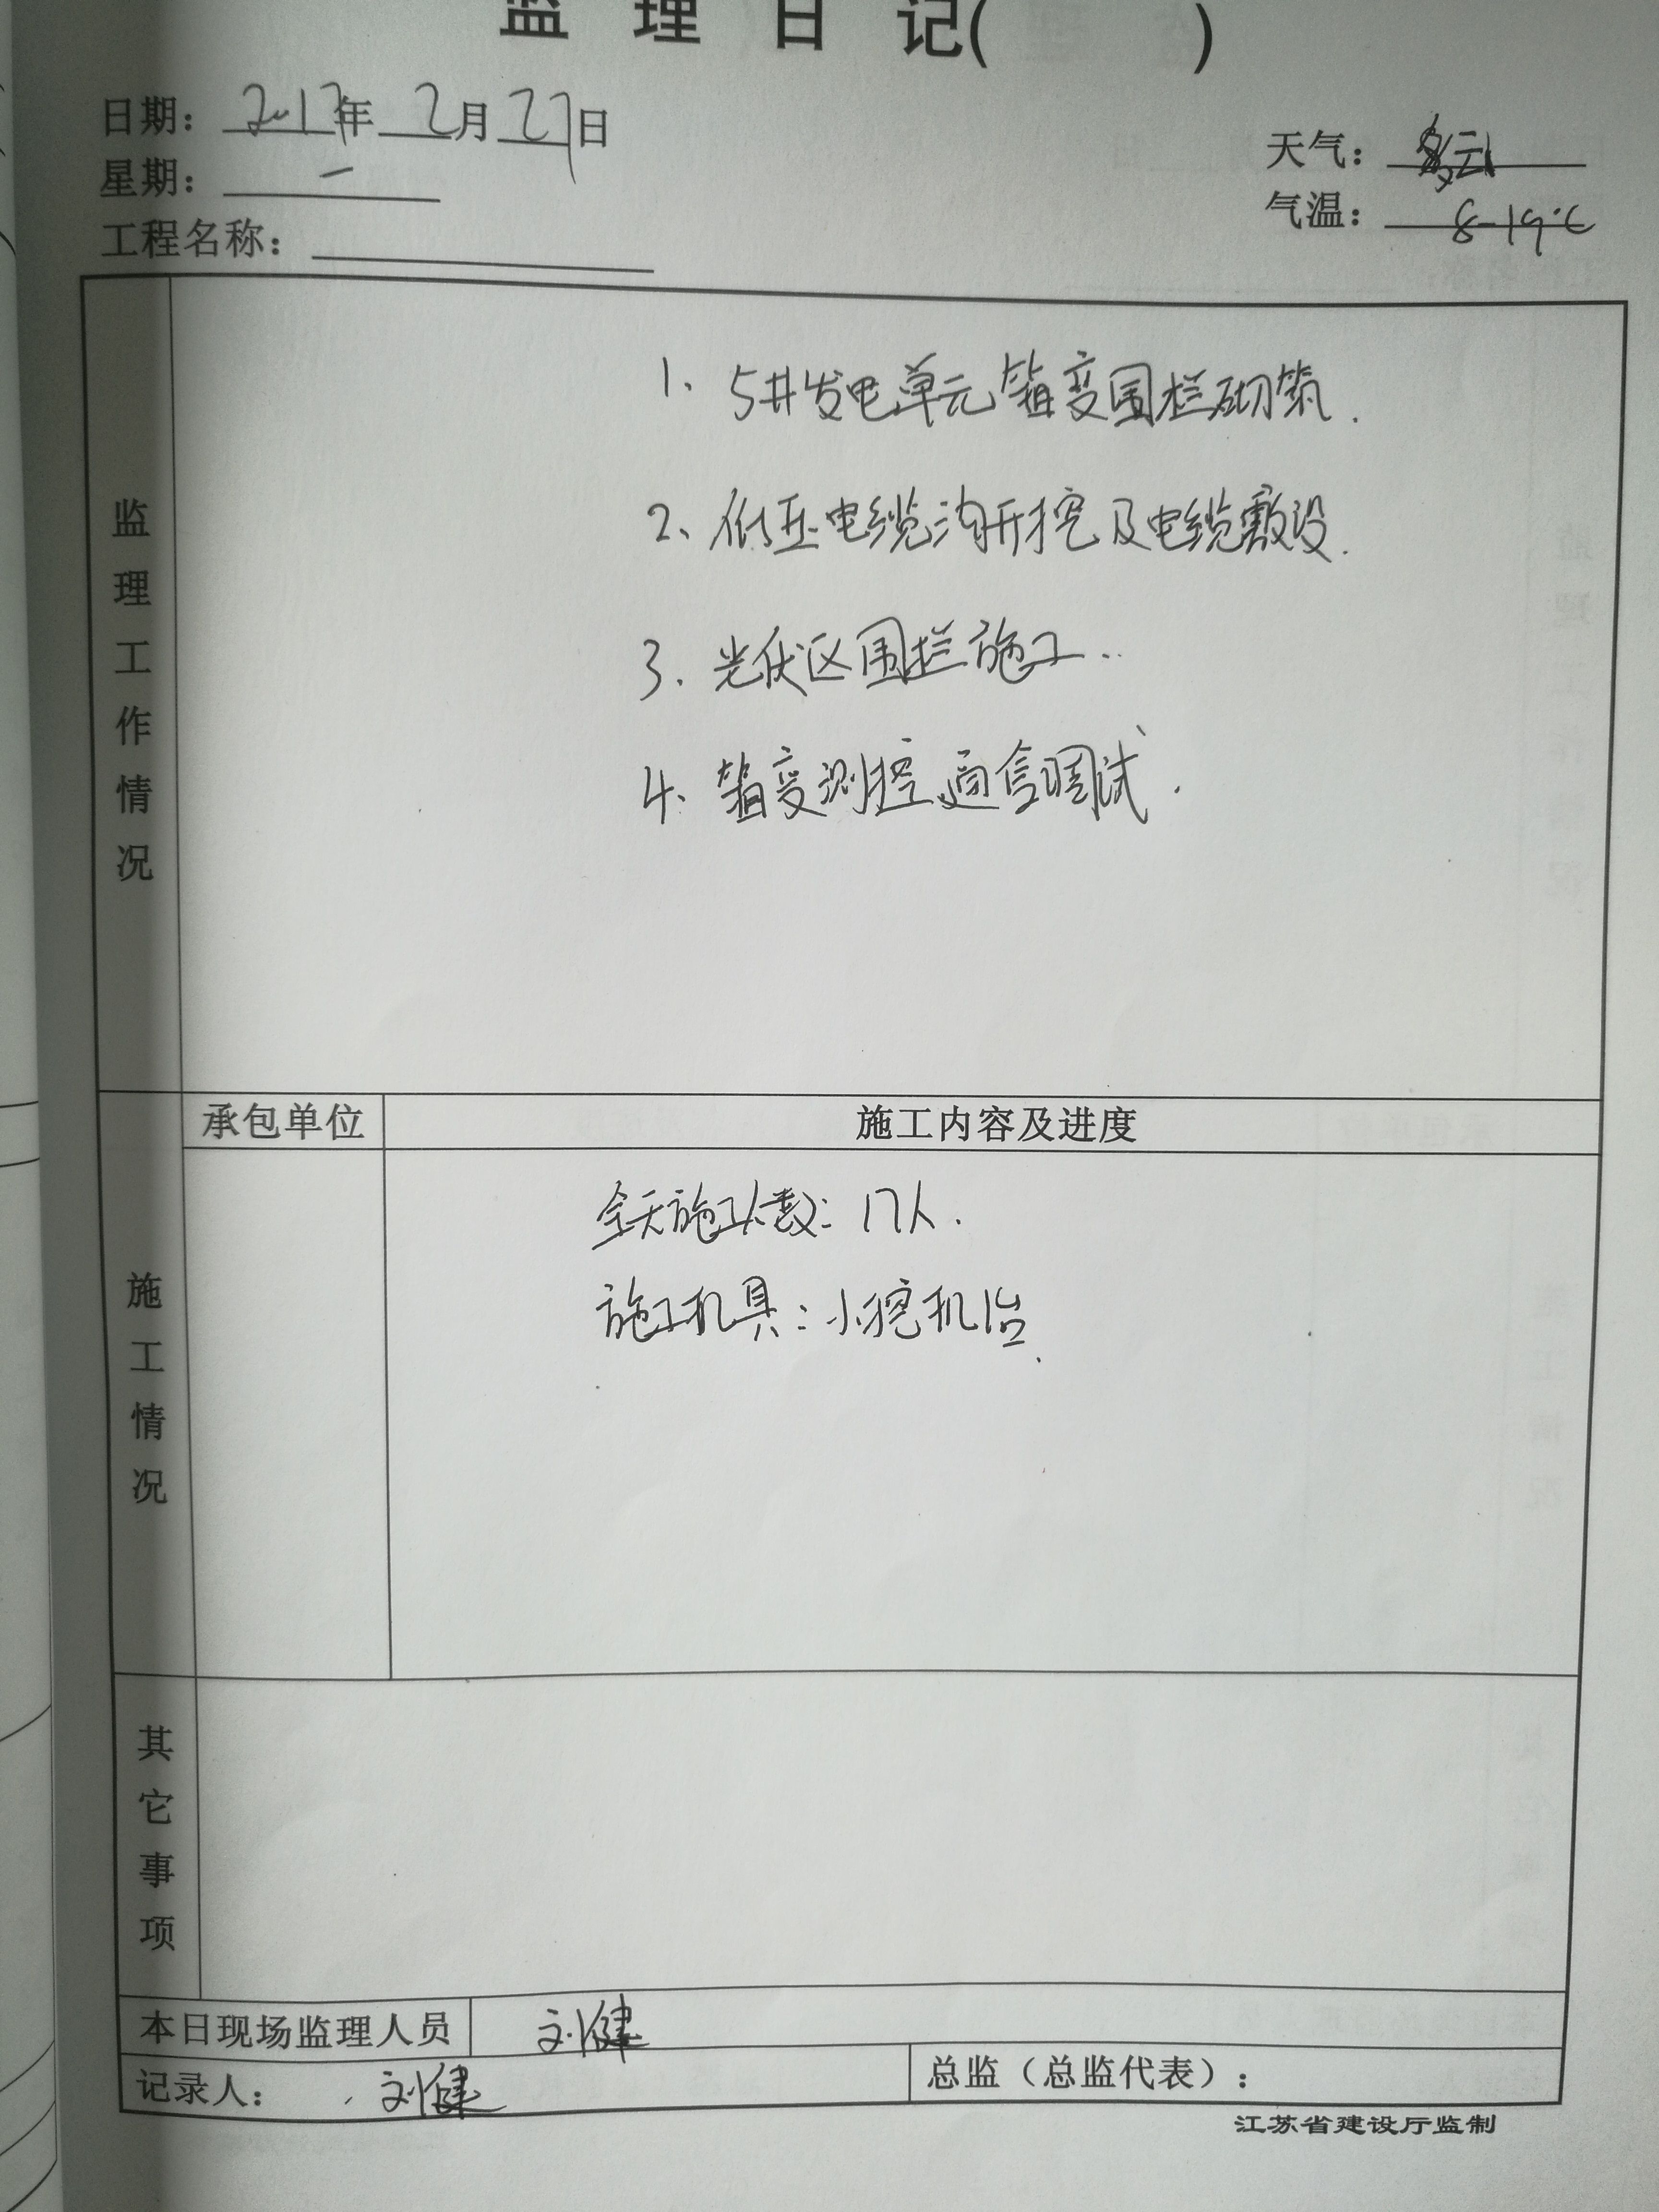 监 理 日 记( )
日期：2017年 2月27日
天气：多云
星期：一
气温：8-19℃
工程名称：
监理工作情况
1、5#发电单元箱变围栏砌筑.
2、低压电缆沟开挖及电缆敷设.
3、光伏区围栏施工.
4、箱变测控通信调试.
承包单位 施工内容及进度
施工情况
全天施工人数：17人.
施工机具：小挖机1台.
其它事项
本日现场监理人员 刘健
记录人：刘健 总监（总监代表）：
江苏省建设厅监制